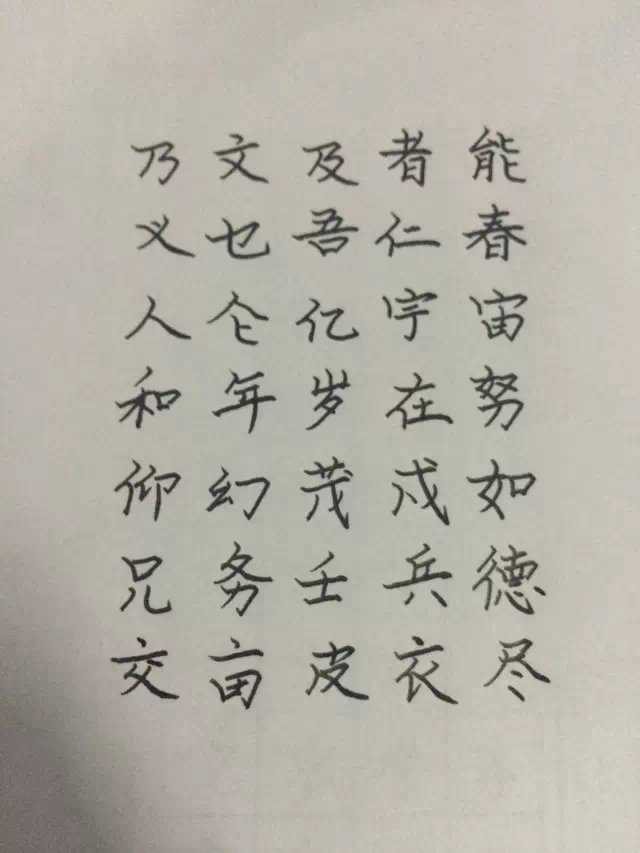 乃文及者能
义乜吾仁春
人仑亿宇宙
和年岁在努
仰幻茂戍如
兄务壬兵德
交亩皮衣尽